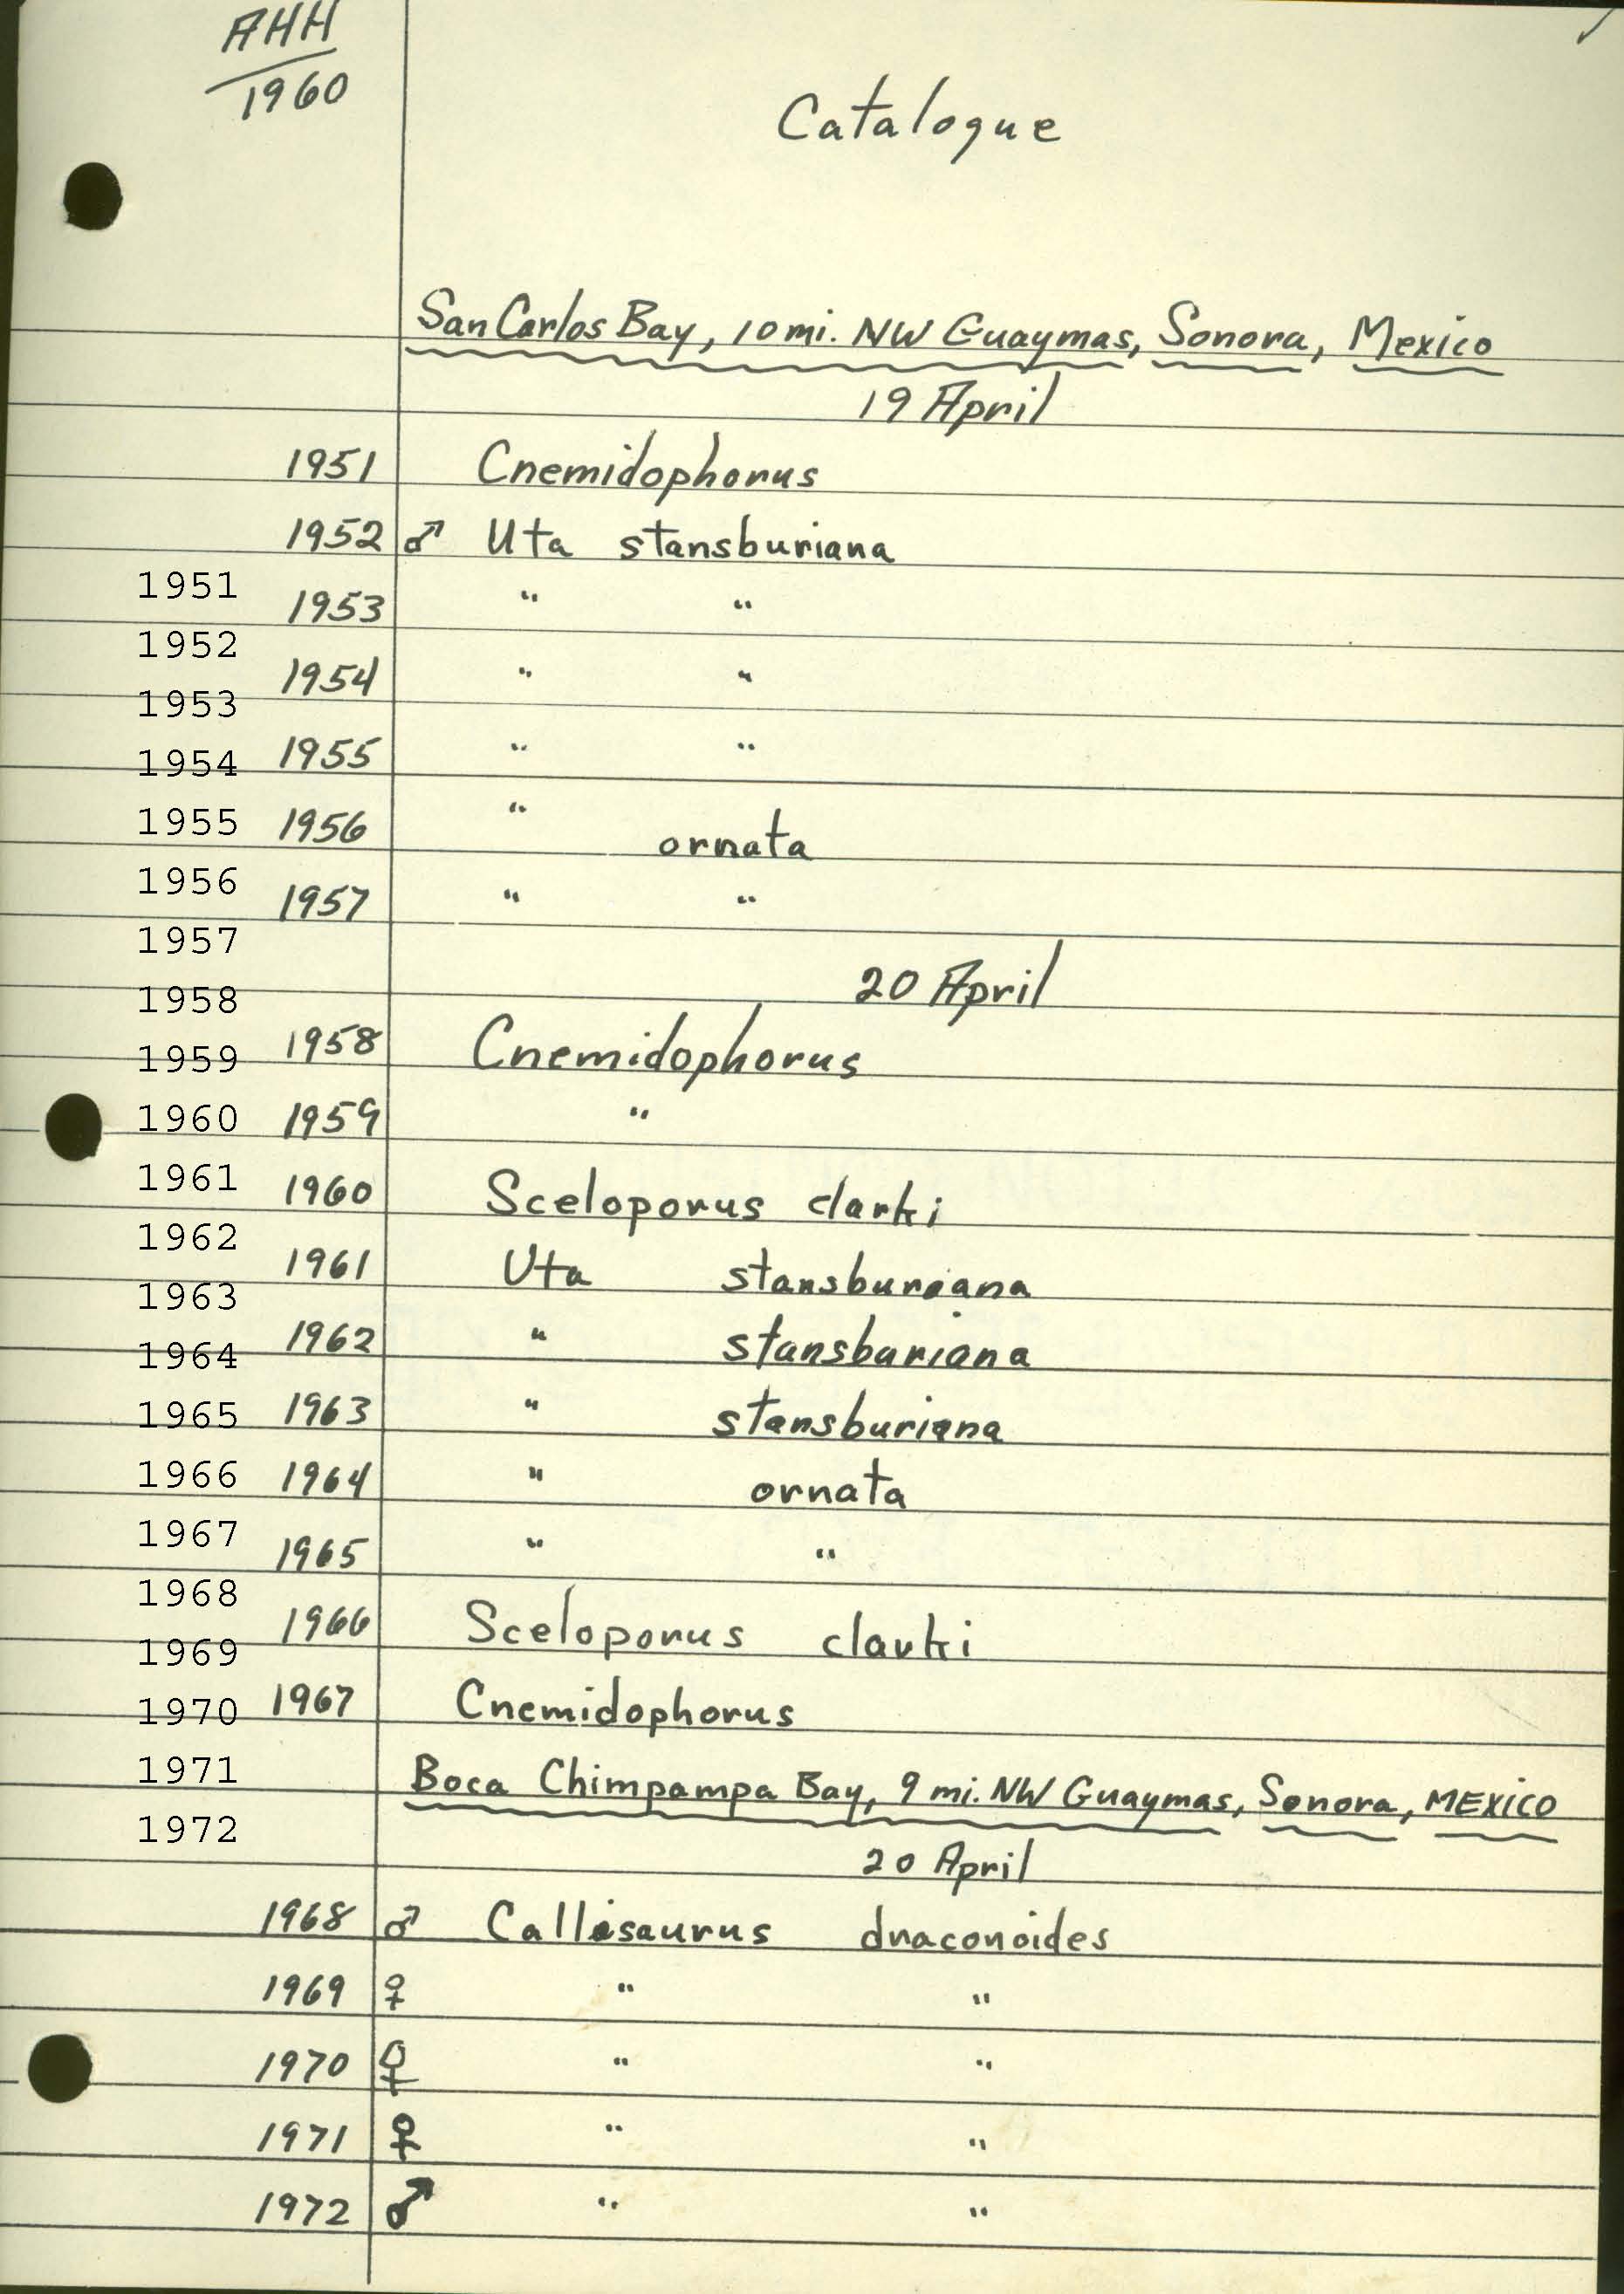 AHH
1960
Catalogue
San Carlos Bay, 10 mi. NW Guaymas, Sonora, Mexico
19 April
1951 Cnemidophorus
1952 ♂ Uta stansburiana
1951
1953 " "
1952
1954 " "
1953
1955 " "
1954
1955 1956 " ornata
1956
1957 " "
1957
20 April
1958
1958 Cnemidophorus
1959
1960 1959 "
1961 1960 Sceloporus clarki
1962
1961 Uta stansburiana
1963
1962 " stansburiana
1964
1965 1963 " stansburiana
1966 1964 " ornata
1967
1965 " "
1968
1966 Sceloporus clarki
1969
1970 1967 Cnemidophorus
1971
Boca Chimpampa Bay, 9 mi. NW Guaymas, Sonora, MEXICO
1972
20 April
1968 ♂ Callisaurus draconoides
1969 ♀ " "
1970 ♀ " "
1971 ♀ " "
1972 ♂ " "